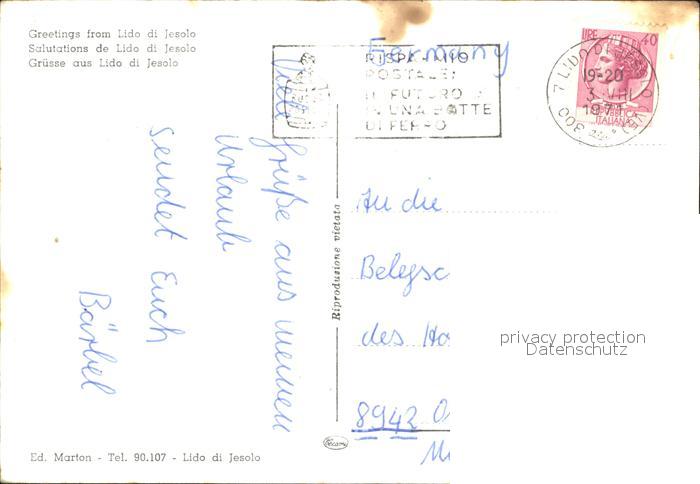 Greetings from Lido di Jesolo
Salutations de Lido di Jesolo
Grüsse aus Lido di Jesolo
Viele Grüße aus meinem
Urlaub
sendet Euch
Bärbel
Ed. Marton - Tel. 90.107 - Lido di Jesolo
Riproduzione vietata
Germany
RISPARMIO
POSTALE:
IL FUTURO
IN UNA BOTTE
DI FERRO
LIRE 40
REPUBBLICA
ITALIANA
7 LIDO DI JESOLO
19-20
3 VIII
197
300
An die
Belegsc
des Ho
8942 O
privacy protection
Datenschutz